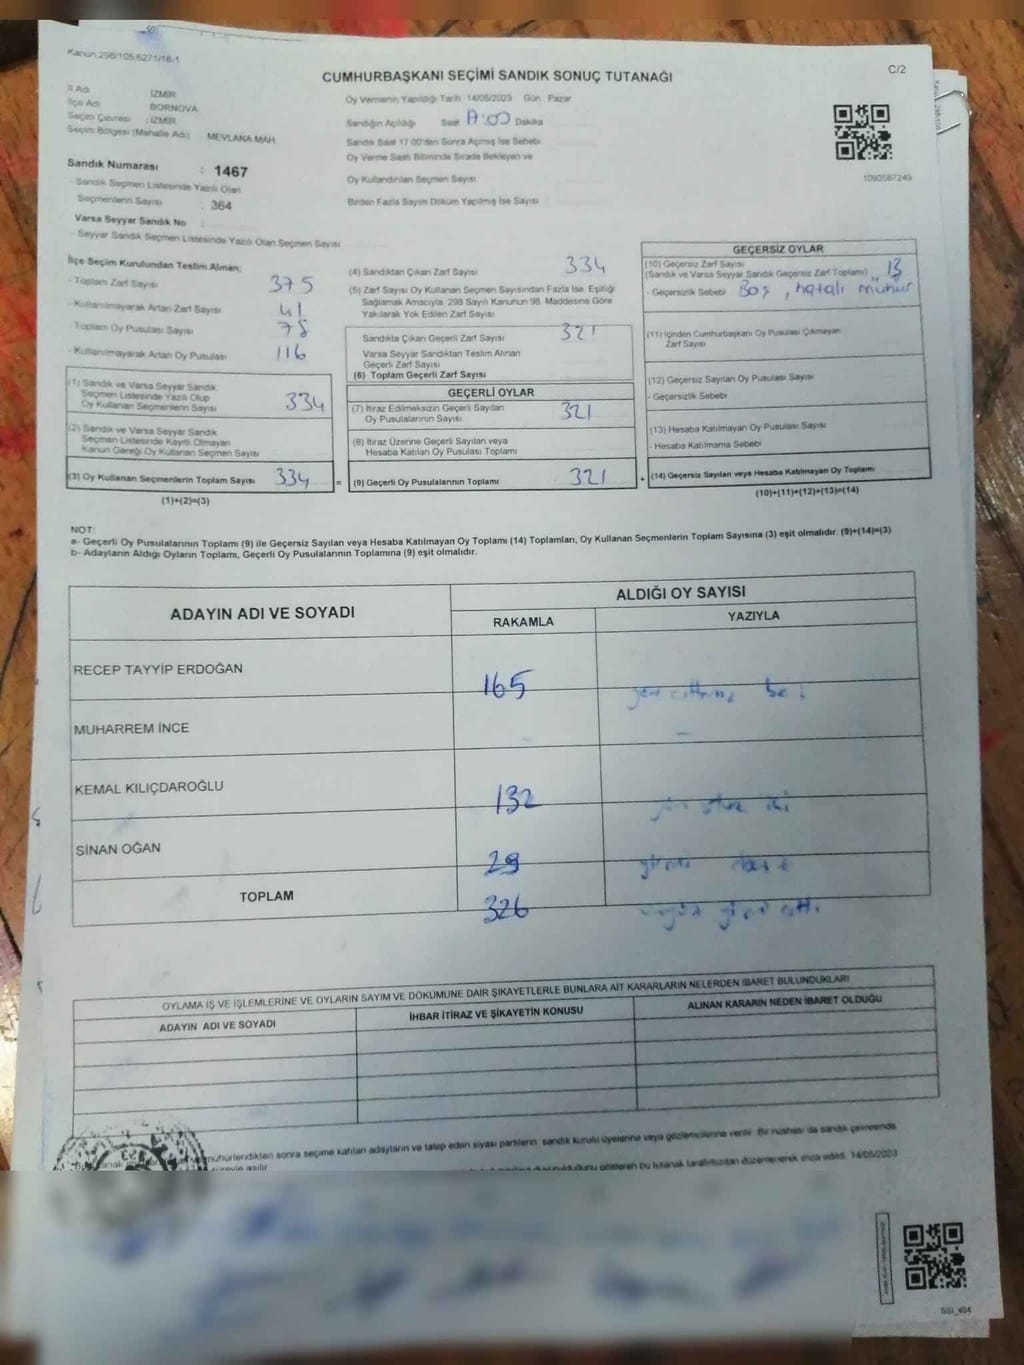 Kanun 298/105,6271/18-1
C/2
CUMHURBAŞKANI SEÇİMİ SANDIK SONUÇ TUTANAĞI
İl Adı İZMİR
İlçe Adı BORNOVA
Seçim Çevresi : İZMİR
Seçim Bölgesi (Mahalle Adı) : MEVLANA MAH.
Sandık Numarası : 1467
- Sandık Seçmen Listesinde Yazılı Olan
Seçmenlerin Sayısı : 364
Varsa Seyyar Sandık No :
- Seyyar Sandık Seçmen Listesinde Yazılı Olan Seçmen Sayısı
Oy Vermenin Yapıldığı Tarih 14/05/2023 Gün : Pazar
Sandığın Açıldığı Saat 17:00 Dakika
Sandık Saat 17:00'den Sonra Açılmış İse Sebebi
Oy Verme Saati Bitiminde Sırada Bekleyen ve
Oy Kullandırılan Seçmen Sayısı
Birden Fazla Sayım Döküm Yapılmış İse Sayısı
1093587249
İlçe Seçim Kurulundan Teslim Alınan;
- Toplam Zarf Sayısı 375
- Kullanılmayarak Artan Zarf Sayısı 41
Toplam Oy Pusulası Sayısı 78
- Kullanılmayarak Artan Oy Pusulası 116
(1) Sandık ve Varsa Seyyar Sandık
Seçmen Listesinde Yazılı Olup
Oy Kullanan Seçmenlerin Sayısı 334
(2) Sandık ve Varsa Seyyar Sandık
Seçmen Listesinde Kayıtlı Olmayan
Kanun Gereği Oy Kullanan Seçmen Sayısı
(3) Oy Kullanan Seçmenlerin Toplam Sayısı 334 =
(1)+(2)=(3)
(4) Sandıktan Çıkan Zarf Sayısı 334
(5) Zarf Sayısı Oy Kullanan Seçmen Sayısından Fazla İse, Eşitliği
Sağlamak Amacıyla, 298 Sayılı Kanunun 98. Maddesine Göre
Yakılarak Yok Edilen Zarf Sayısı
Sandıkta Çıkan Geçerli Zarf Sayısı 321
Varsa Seyyar Sandıktan Teslim Alınan
Geçerli Zarf Sayısı
(6) Toplam Geçerli Zarf Sayısı
GEÇERLİ OYLAR
(7) İtiraz Edilmeksizin Geçerli Sayılan
Oy Pusulalarının Sayısı 321
(8) İtiraz Üzerine Geçerli Sayılan veya
Hesaba Katılan Oy Pusulası Toplamı
(9) Geçerli Oy Pusulalarının Toplamı 321 +
GEÇERSİZ OYLAR
(10) Geçersiz Zarf Sayısı
(Sandık ve Varsa Seyyar Sandık Geçersiz Zarf Toplamı) 13
- Geçersizlik Sebebi Boş, hatalı mühür
(11) İçinden Cumhurbaşkanı Oy Pusulası Çıkmayan
Zarf Sayısı
(12) Geçersiz Sayılan Oy Pusulası Sayısı
- Geçersizlik Sebebi
(13) Hesaba Katılmayan Oy Pusulası Sayısı
- Hesaba Katılmama Sebebi
(14) Geçersiz Sayılan veya Hesaba Katılmayan Oy Toplamı
(10)+(11)+(12)+(13)=(14)
NOT:
a- Geçerli Oy Pusulalarının Toplamı (9) ile Geçersiz Sayılan veya Hesaba Katılmayan Oy Toplamı (14) Toplamları, Oy Kullanan Seçmenlerin Toplam Sayısına (3) eşit olmalıdır. (9)+(14)=(3)
b- Adayların Aldığı Oyların Toplamı, Geçerli Oy Pusulalarının Toplamına (9) eşit olmalıdır.
ADAYIN ADI VE SOYADI
ALDIĞI OY SAYISI
RAKAMLA YAZIYLA
RECEP TAYYİP ERDOĞAN 165
MUHARREM İNCE - -
KEMAL KILIÇDAROĞLU 132
SİNAN OĞAN 29
TOPLAM 326
OYLAMA İŞ VE İŞLEMLERİNE VE OYLARIN SAYIM VE DÖKÜMÜNE DAİR ŞİKAYETLERLE BUNLARA AİT KARARLARIN NELERDEN İBARET BULUNDUKLARI
ADAYIN ADI VE SOYADI
İHBAR İTİRAZ VE ŞİKAYETİN KONUSU
ALINAN KARARIN NEDEN İBARET OLDUĞU
mühürlendikten sonra seçime katılan adayların ve talep eden siyasi partilerin sandık kurulu üyelerine veya gözlemcilerine verilir. Bir nüshası da sandık çevresinde
bu tutanak tarafımızdan düzenlenerek imza edildi. 14/05/2023
SSI_404